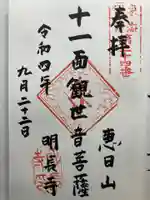 奉拝
恵日山
十一面観世音菩薩
明長寺
令和四年
九月二十二日